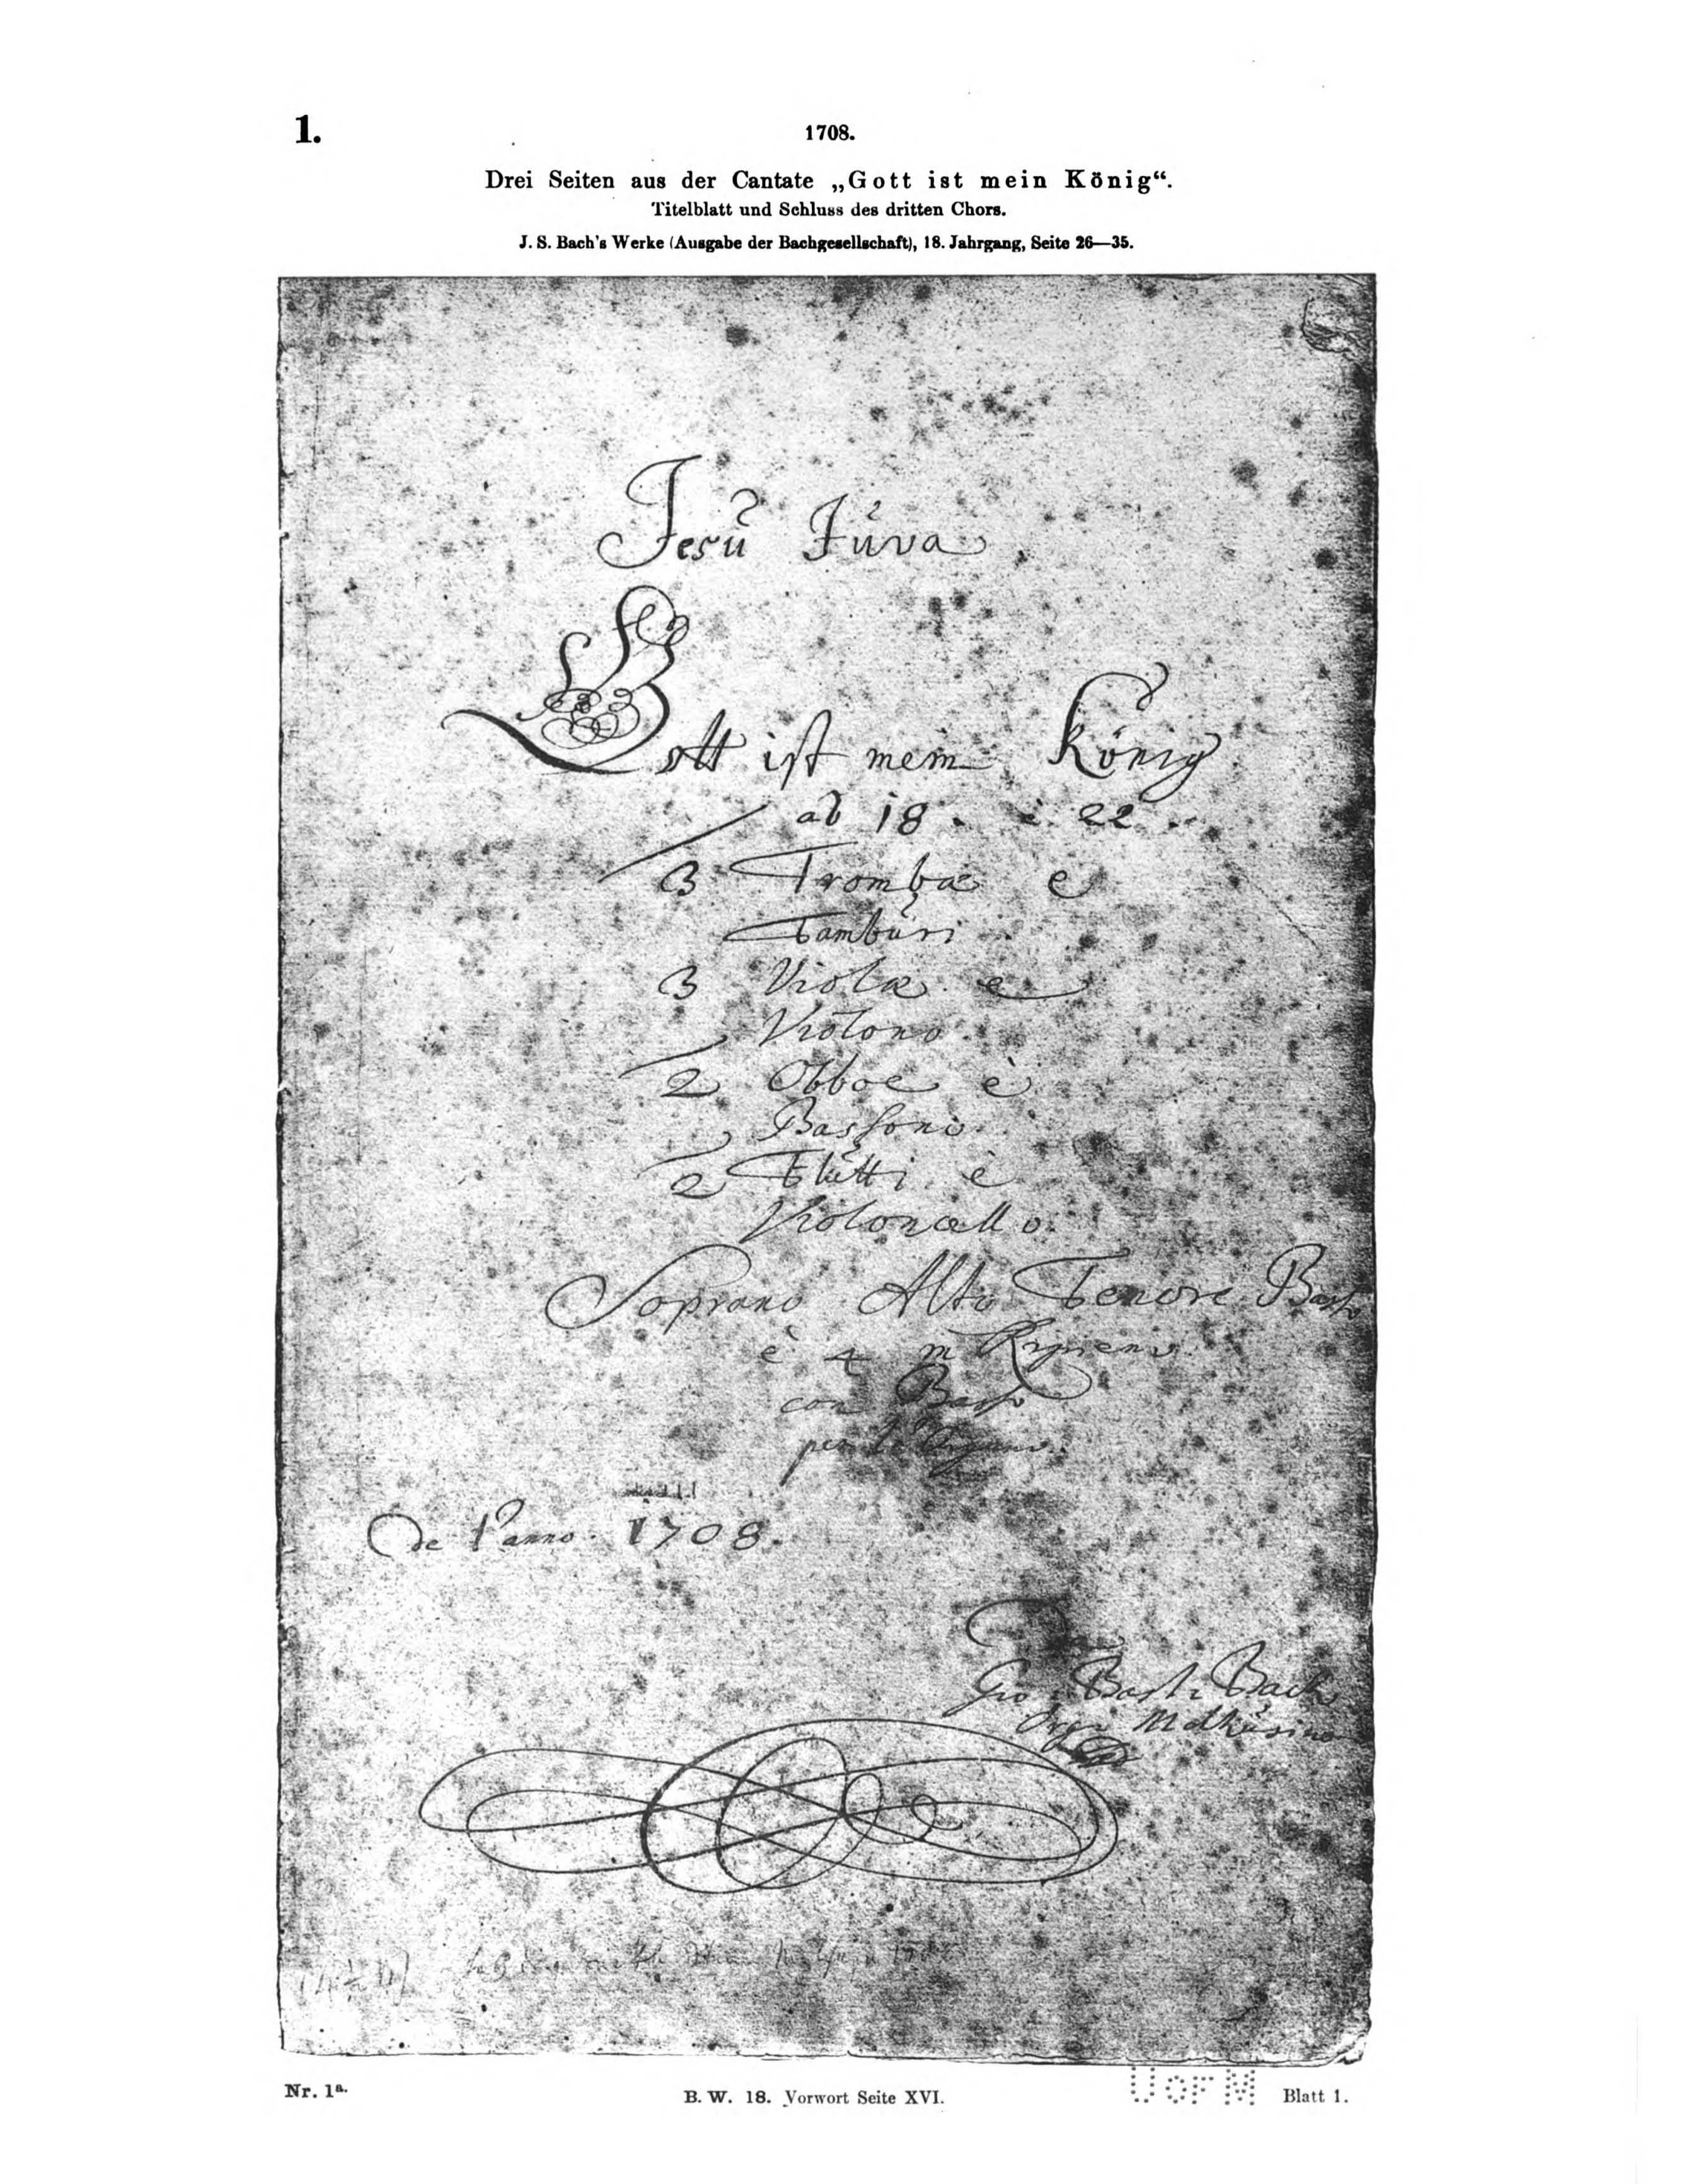 1.
1708.
Drei Seiten aus der Cantate „Gott ist mein König“.
Titelblatt und Schluss des dritten Chors.
J. S. Bach's Werke (Ausgabe der Bachgesellschaft), 18. Jahrgang, Seite 26—35.
Jesu Juva
Gott ist mein König
ab 18. è 22.
3 Trombæ e
Tamburi
3 Violæ e
Violono
2 Obboe è
Bassono
2 Flutti è
Violoncello.
Soprano Alto Tenore Basso
è 4 in Ripieno.
con Basso
per l'Organo.
De l'anno 1708.
Gio: Bast: Bach
Org: Molhusino
Nr. 1a.
B. W. 18. Vorwort Seite XVI.
U OF M
Blatt 1.